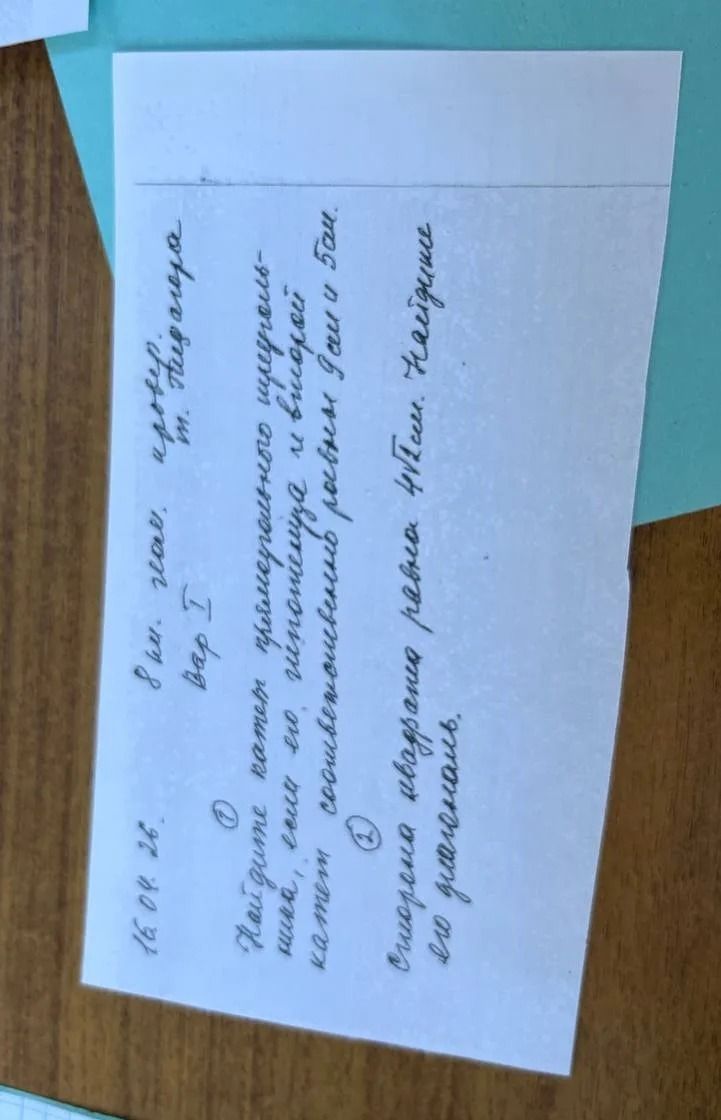 16.04.26. 8 кл. провер.
Вар I т. Пифагора
①
Найдите катет прямоугольного треуголь-
ника, если его гипотенуза и второй
катет соответственно равны 9см и 5см.
②
Сторона квадрата равна 4√2см. Найдите
его диагональ.